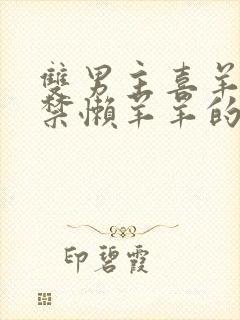 雙男主喜羊
禁懶羊羊的
印碧霞